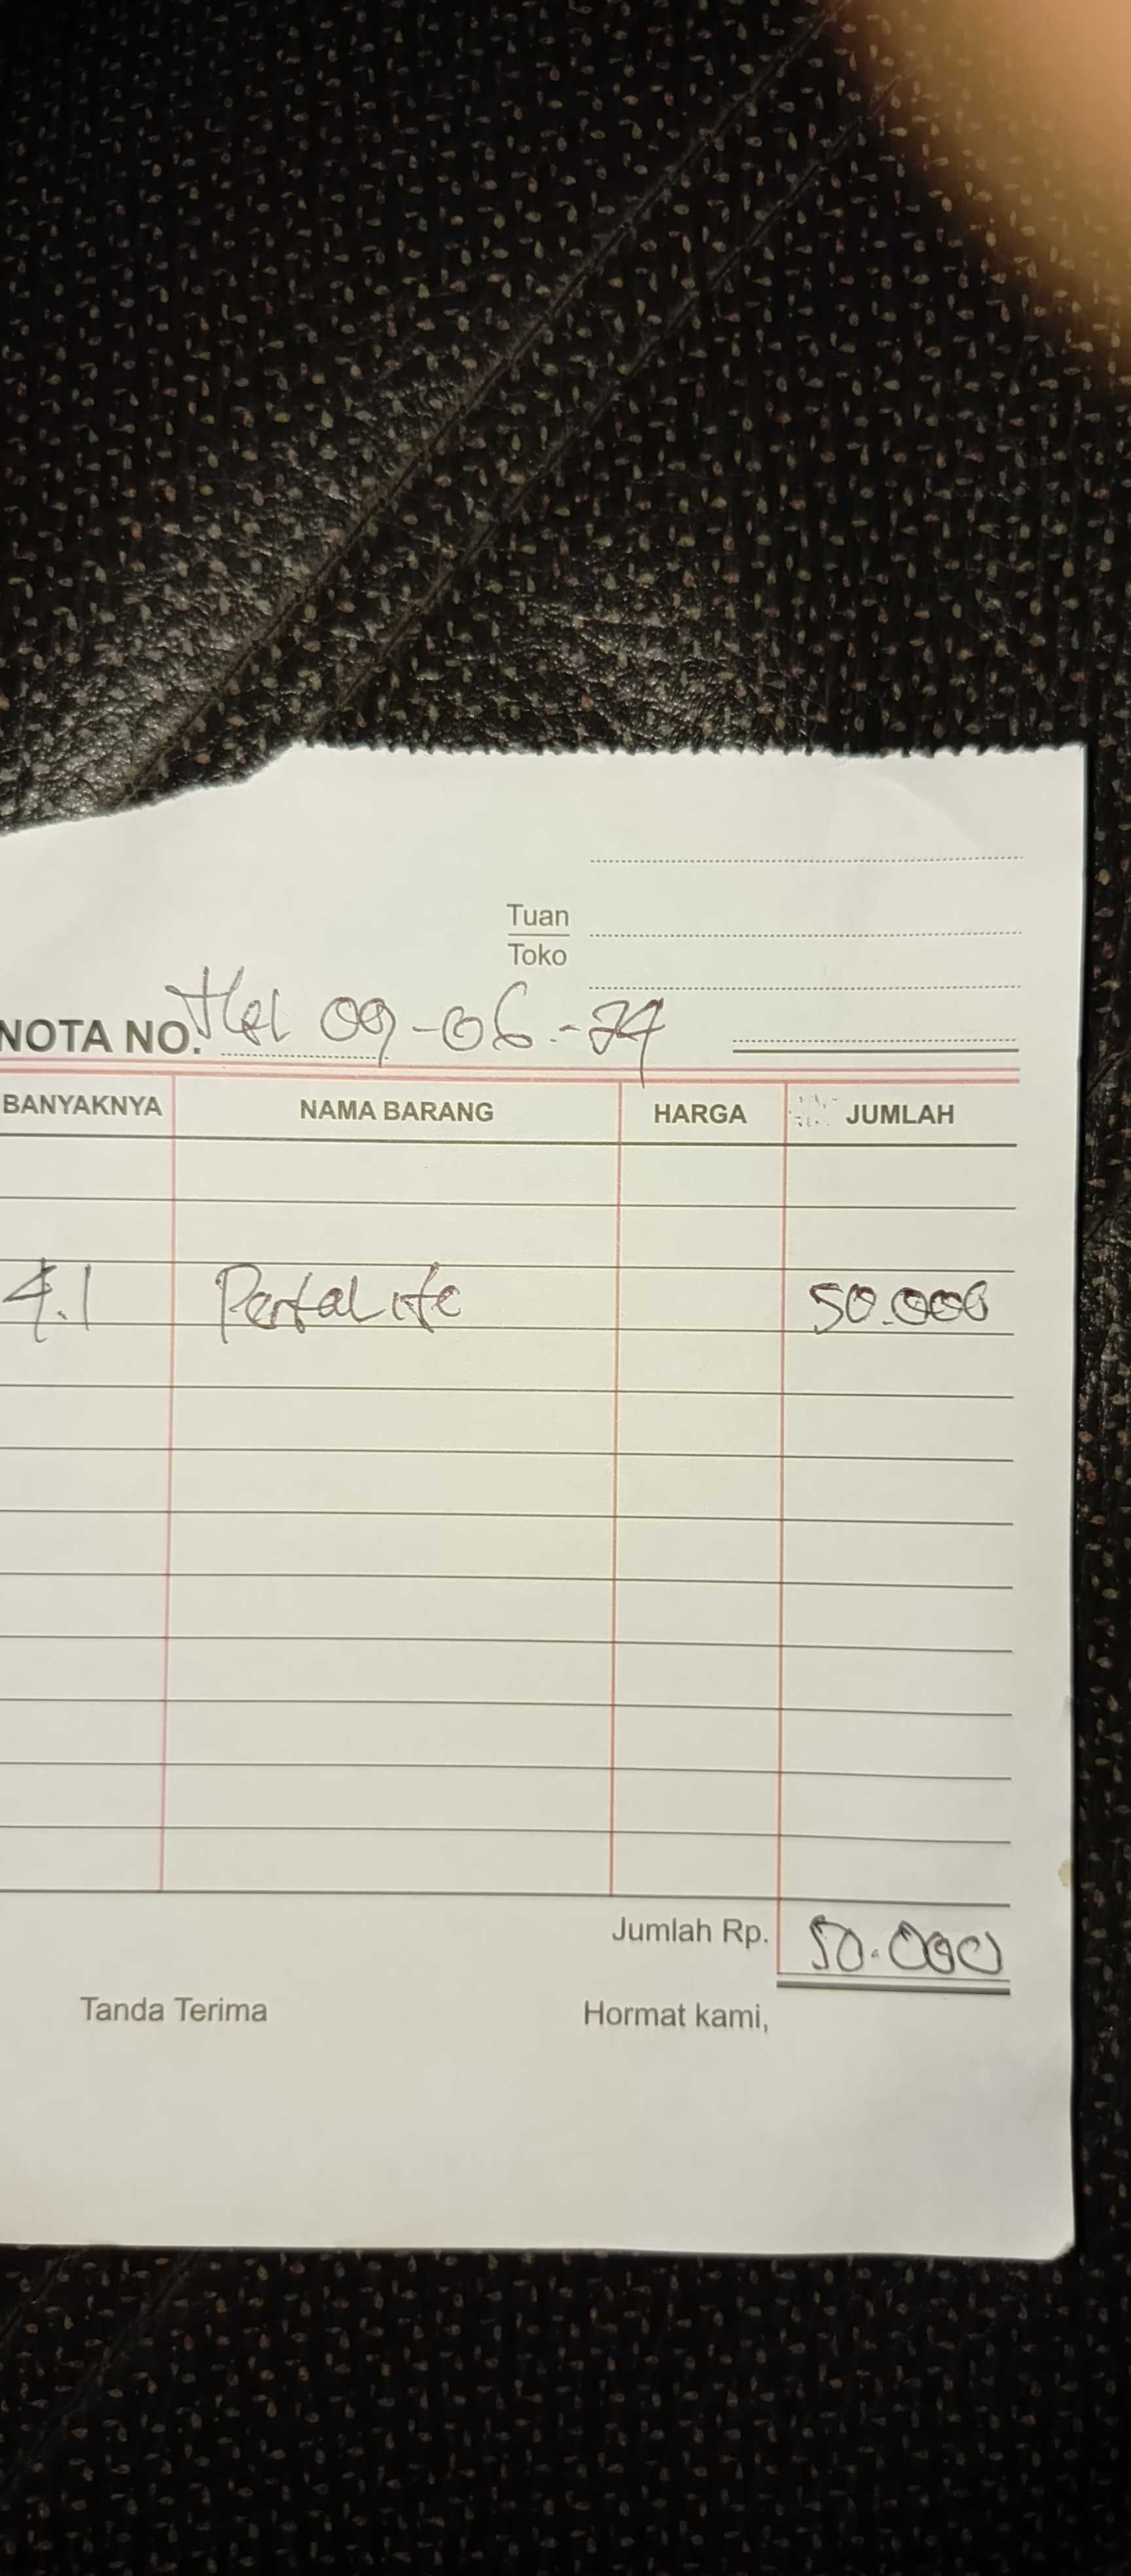 Tuan
Toko
NOTA NO. Hal 09-06-24
BANYAKNYA NAMA BARANG HARGA JUMLAH
4.1 Pertalite 50.000
Jumlah Rp. 50.000
Tanda Terima Hormat kami,